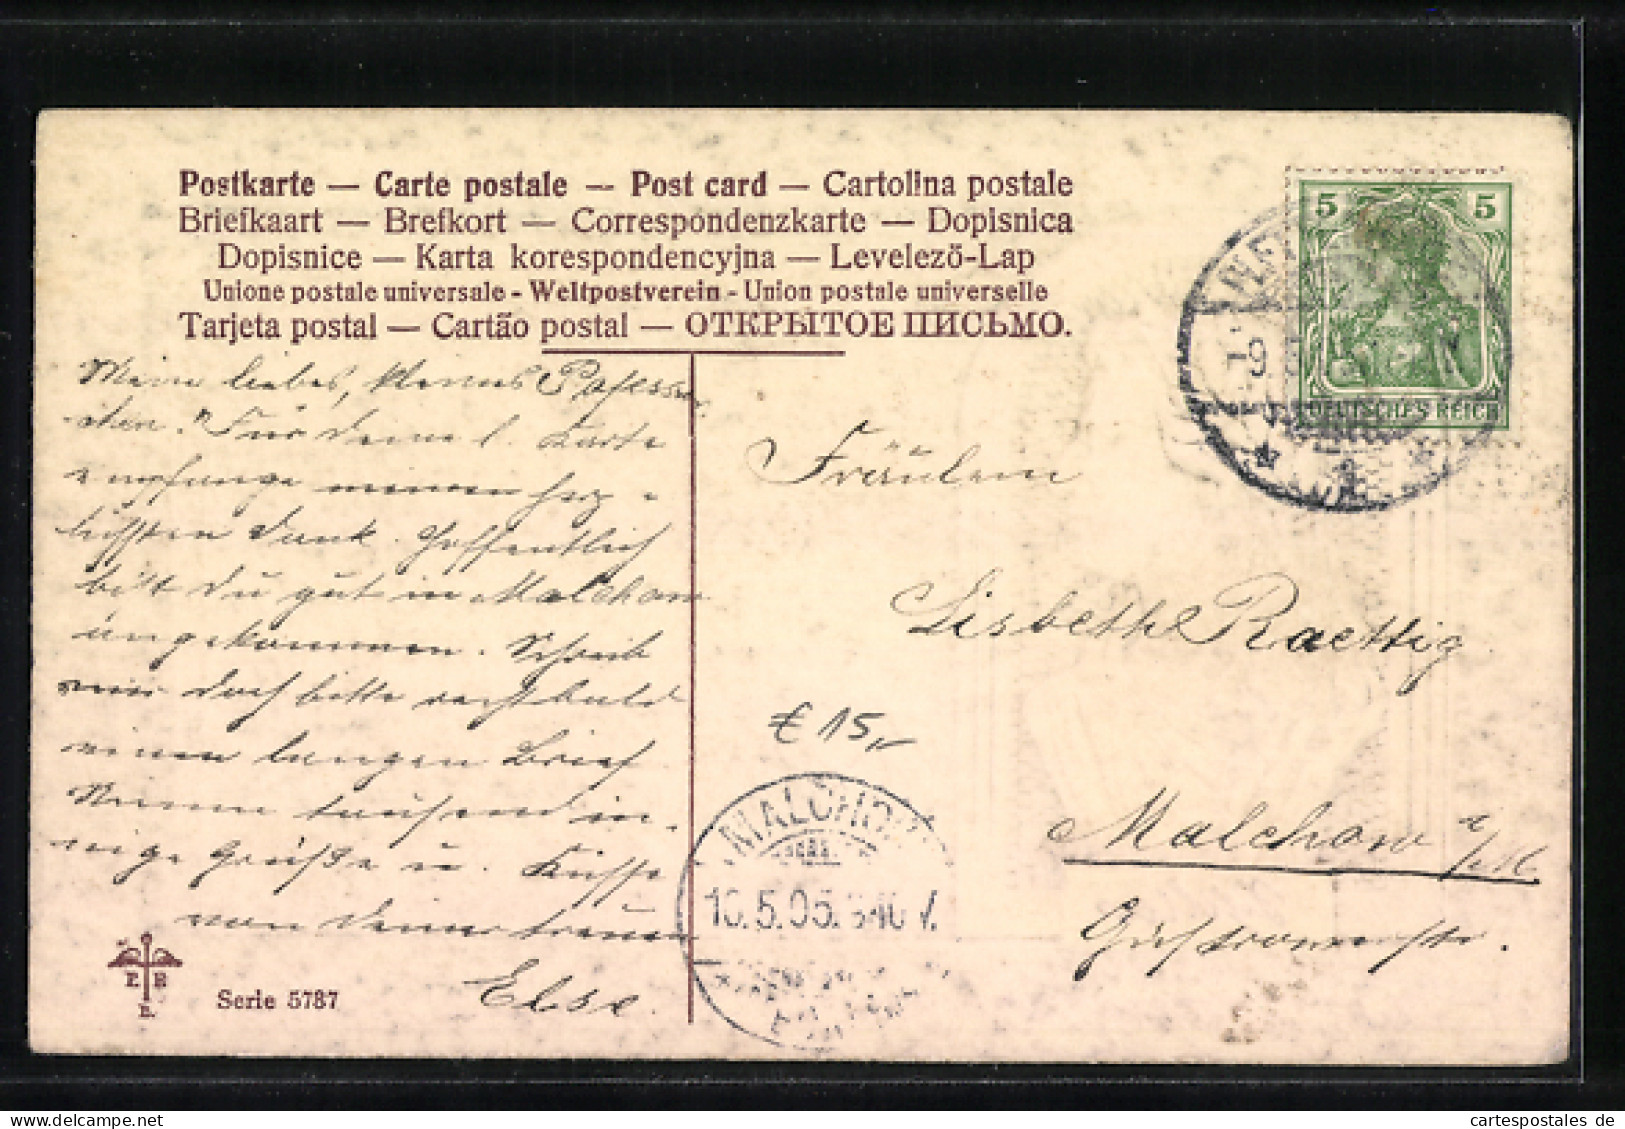 Postkarte — Carte postale — Post card — Cartolina postale
Briefkaart — Brefkort — Correspondenzkarte — Dopisnica
Dopisnice — Karta korespondencyjna — Levelező-Lap
Unione postale universale - Weltpostverein - Union postale universelle
Tarjeta postal — Cartão postal — ОТКРЫТОЕ ПИСЬМО.
5 5
DEUTSCHES REICH
9
Meine liebes, kleines
Für deine l. Karte
empfange meinen herz-
lichsten Dank. Hoffentlich
bist Du gut in Malchow
angekommen. Schreib
mir doch bitte recht bald
einen langen Brief
tausend in-
nige Grüße u. Küsse
von Deiner treuen
Else.
Fräulein
Lisbeth Raettig
€ 15,-
Malchow i/M
Güstrowerstr.
MALCHOW
5.05.
E B
E.
Serie 5787
cartespostales.de